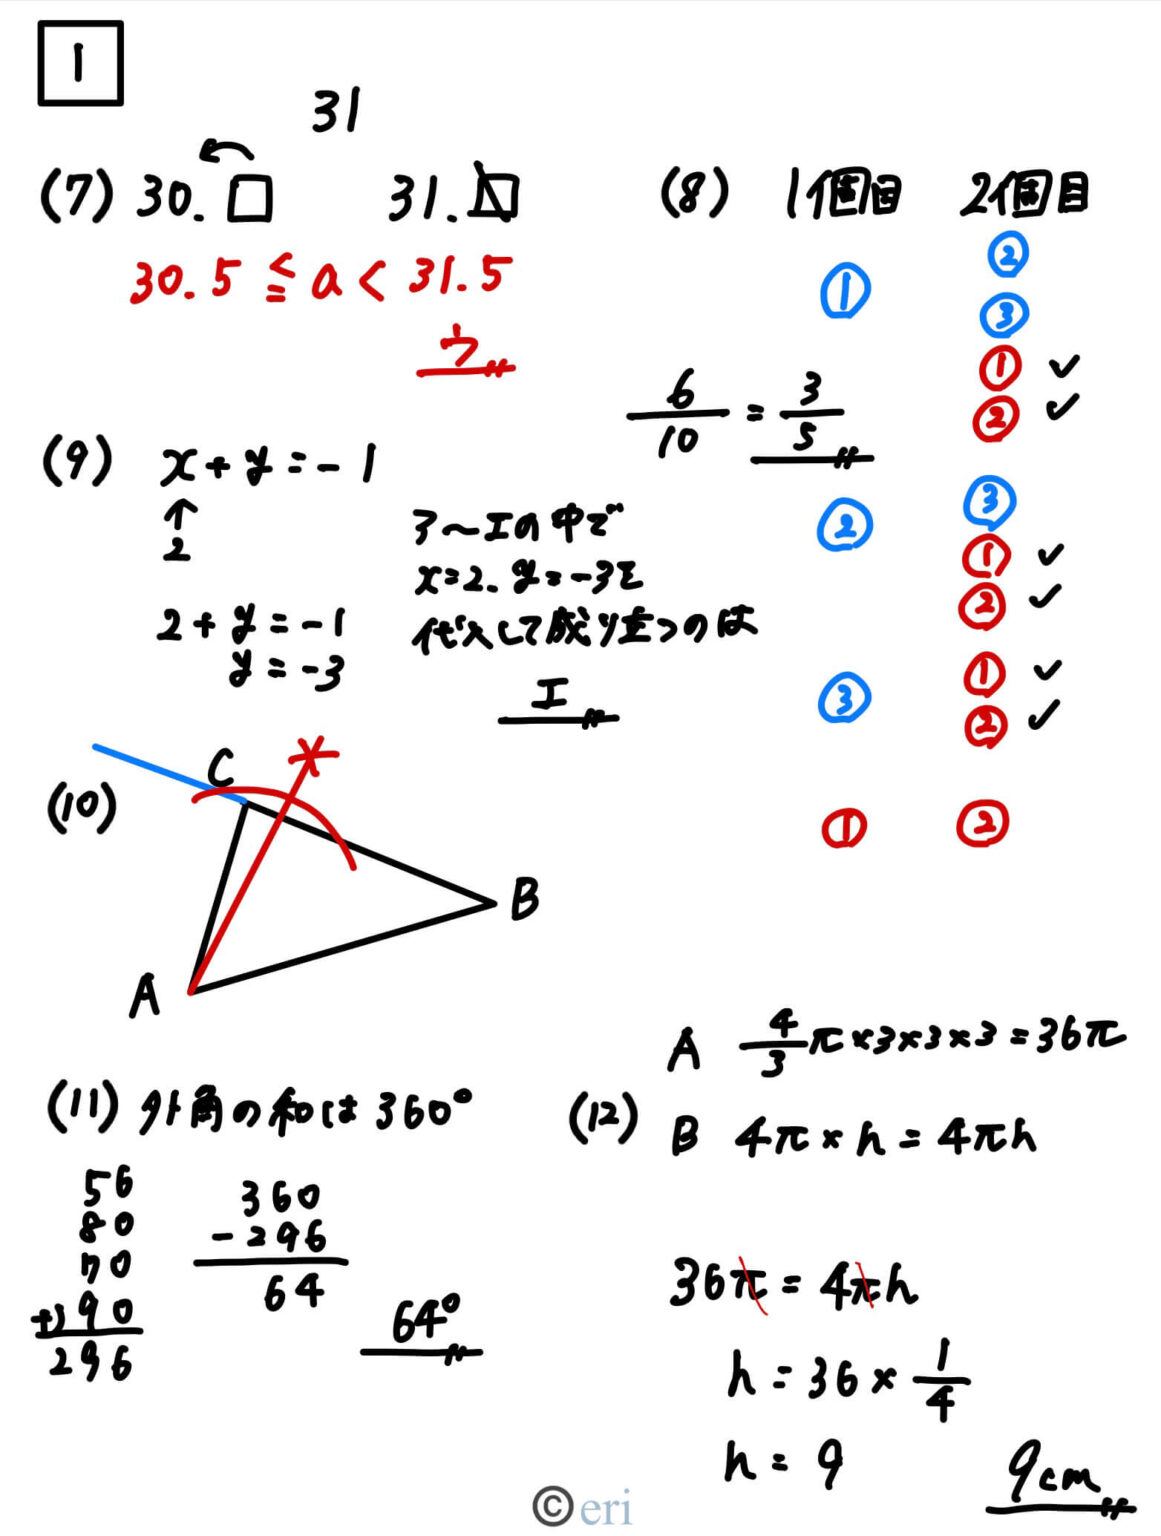 1
31
(7) 30.□ 31.□
30.5 ≦ a < 31.5
ウ
(8) 1個目 2個目
①
②
③
① ✓
② ✓
②
③
① ✓
② ✓
③
① ✓
② ✓
① ②
6/10 = 3/5
(9) x + y = -1
↑
2
2 + y = -1
y = -3
ア～エの中で
x=2. y=-3を
代入して成り立つのは
エ
(10)
C
B
A
(11) 外角の和は 360°
56
80
70
+) 90
296
360
- 296
64
64°
(12)
A 4/3 π×3×3×3 = 36π
B 4π × h = 4πh
36π = 4πh
h = 36 × 1/4
h = 9
9cm
© eri